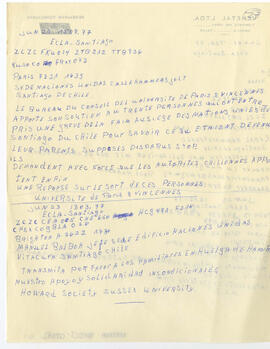 JUN 23 1303.77
ECLA-SANTIAGO
ZCZC
PARIS F721 1423
SEDE NACIONES UNIDAS CASILLA HAMMERSKJOLT
SANTIAGO DE CHILE
LE BUREAU DU CONSEIL DEL UNIVERSITE DE PARIS 8 VINCENNES
APPORTE SON SOUTIEN A TRENTE PERSONNES QUI ONT ENTRE
PRIS UNE GREVE DE LA FAIM AU SIEGE DES NATIONS UNIES DE
SANTIAGO DU CHILE POUR SAVOIR CE QU ETAIENT DEVENUS
LEUR PARENTS SUPPOSES DISPARUS STOP
ILS
DEMANDENT AVEC FORCE QUE LES AUTORITES CHILIENNES APPOR
TENT ENFIN
UNE REPONSE SUR LE SORT DE CES PERSONNES
UNIVERSITE DE PARIS 8 VINCENNES
JUN 23 1303.77
ECLA-SANTIAGO
ZCZC
BRIGHTON
MANUEL BALBOA JEFE SEDE EDIFICIO NACIONES UNIDAS
VITACURA SANTIAGO CHILE
TRANSMITA POR FAVOR A LOS FAMILIARES EN HUELGA DE HAMBRE
NUESTRO APOYO Y SOLIDARIDAD INCONDICIONALES
HOWARD SOCIETY SUSSEX UNIVERSITY